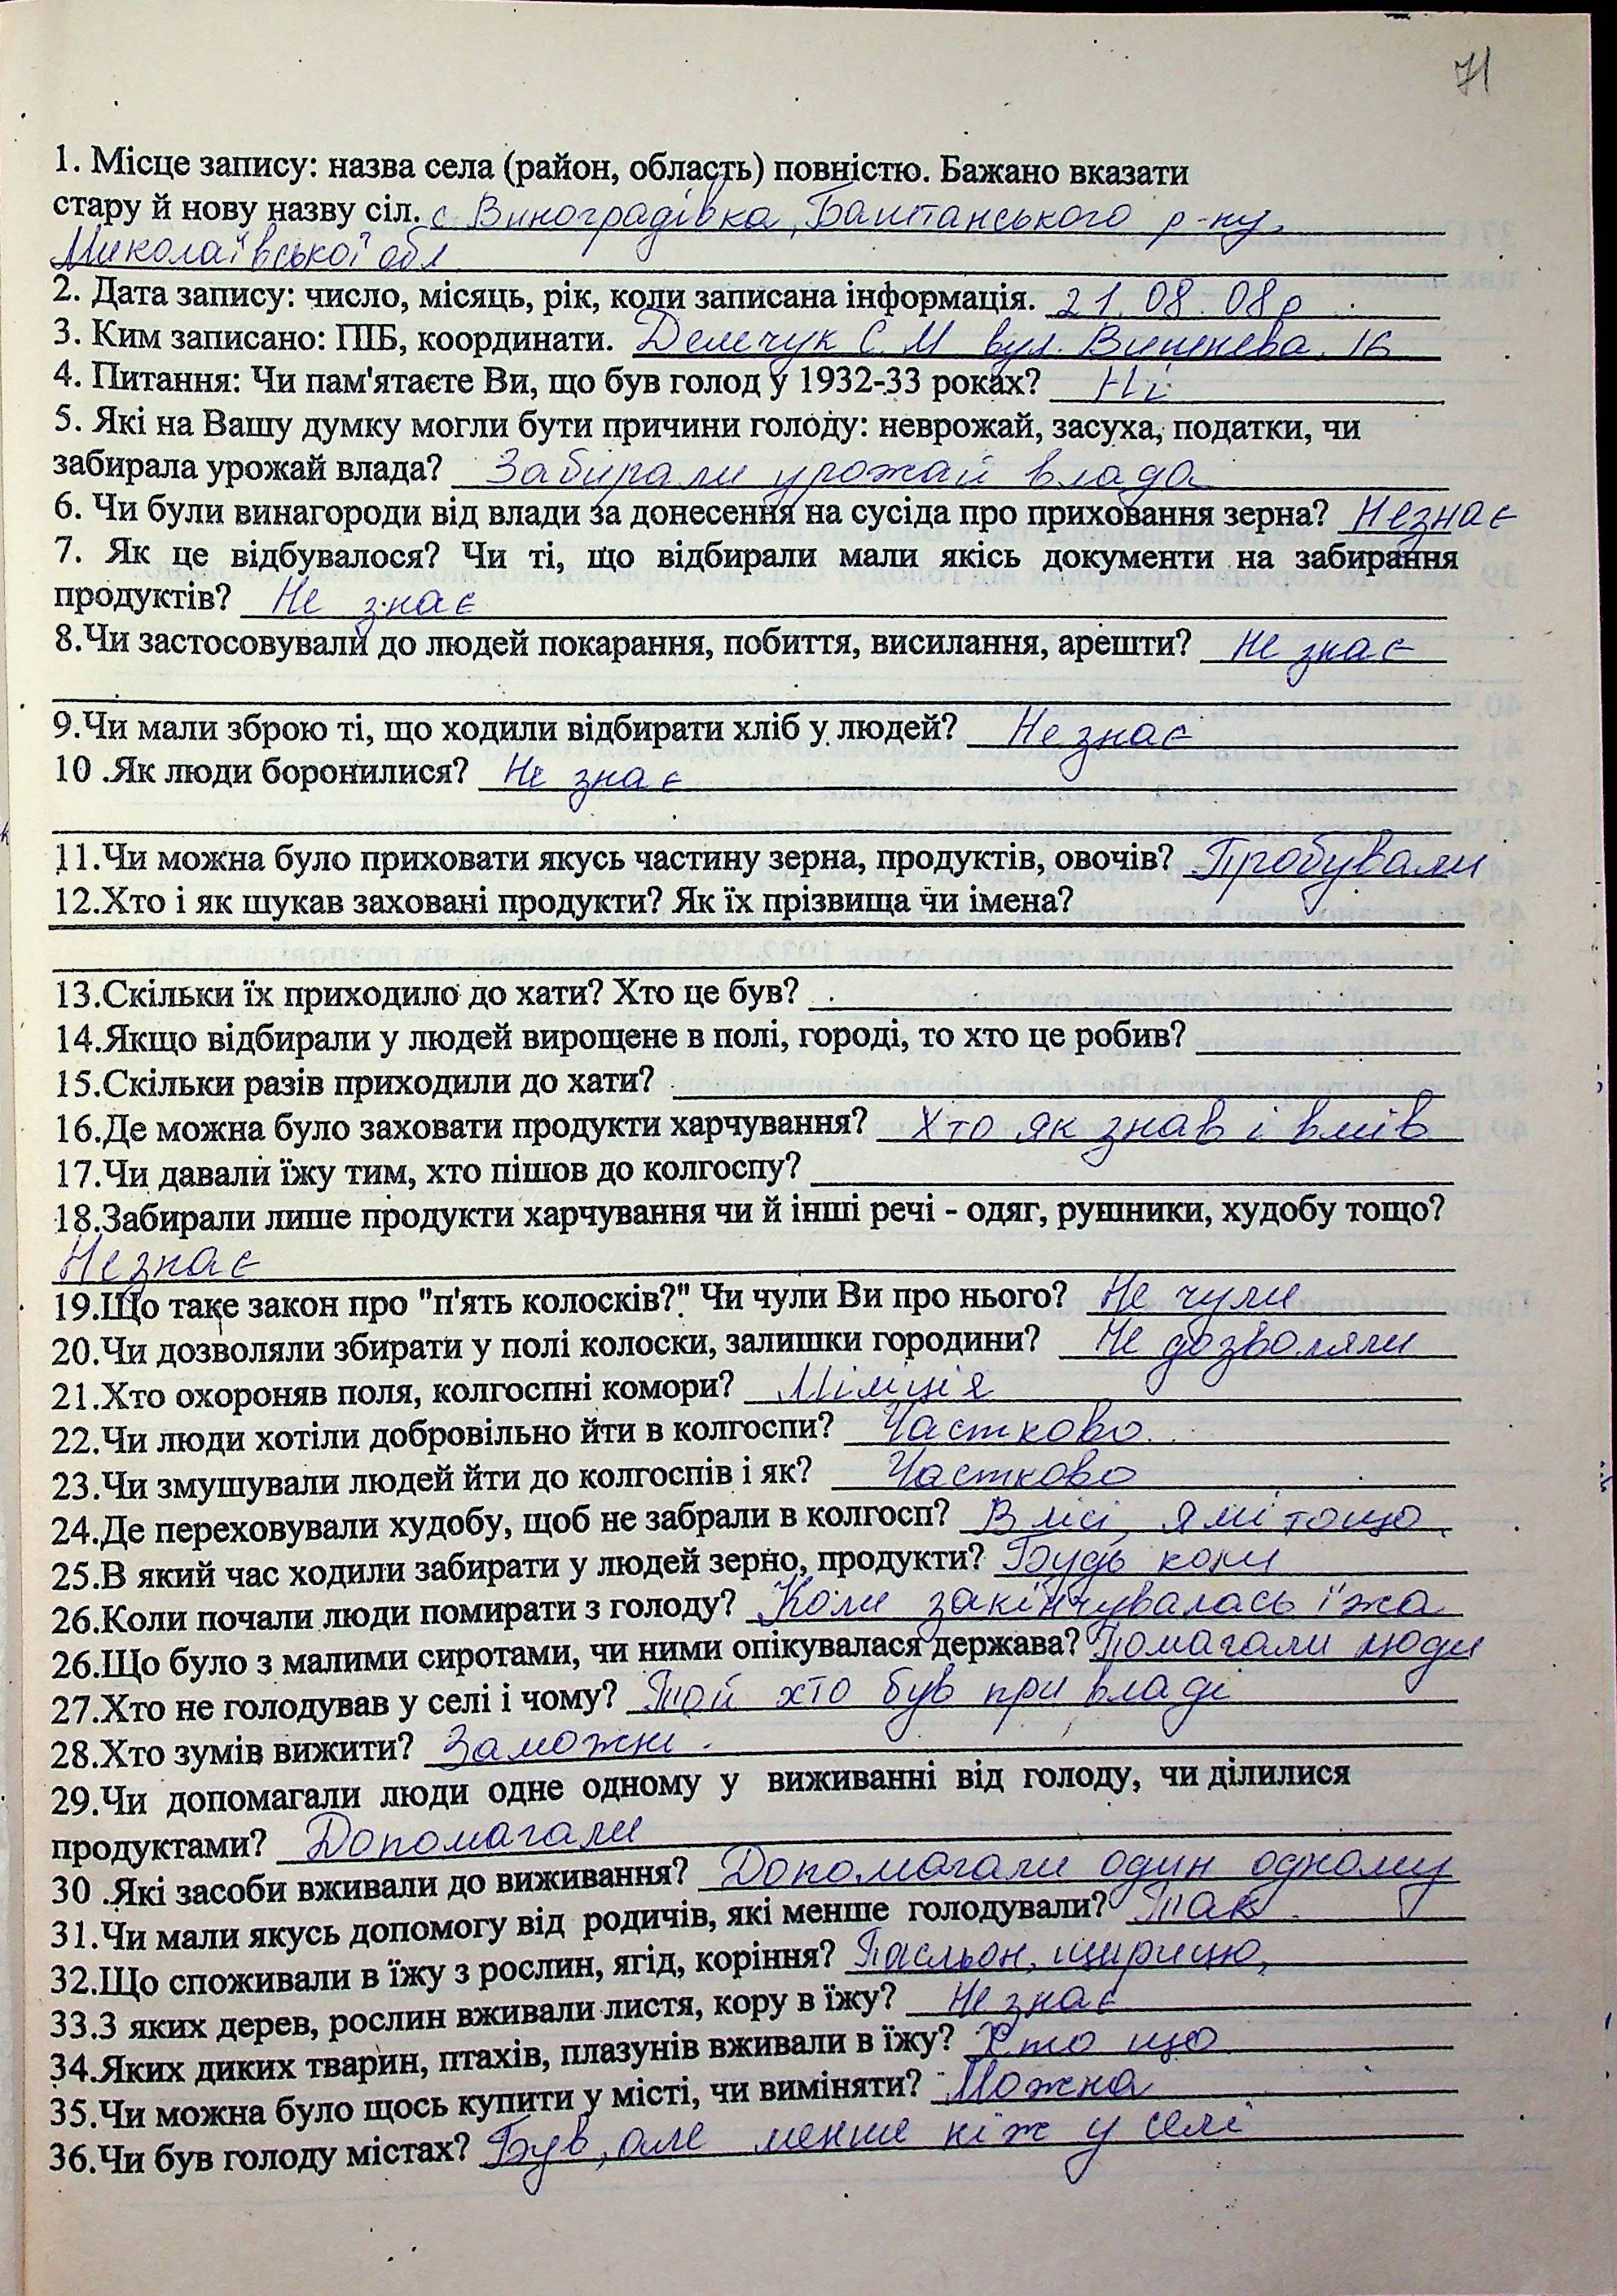 71
1. Місце запису: назва села (район, область) повністю. Бажано вказати
стару й нову назву сіл. с Виноградівка, Баштанського р-ну,
Миколаївської обл
2. Дата запису: число, місяць, рік, коли записана інформація. 21.08.08р
3. Ким записано: ПІБ, координати. Демчук С. М вул. Вишнева, 16
4. Питання: Чи пам'ятаєте Ви, що був голод у 1932-33 роках? Ні
5. Які на Вашу думку могли бути причини голоду: неврожай, засуха, податки, чи
забирала урожай влада? Забирали урожай влада
6. Чи були винагороди від влади за донесення на сусіда про приховання зерна? Незнає
7. Як це відбувалося? Чи ті, що відбирали мали якісь документи на забирання
продуктів? Не знає
8.Чи застосовували до людей покарання, побиття, висилання, арешти? Не знає
9.Чи мали зброю ті, що ходили відбирати хліб у людей? Не знає
10 .Як люди боронилися? Не знає
11.Чи можна було приховати якусь частину зерна, продуктів, овочів? Пробували
12.Хто і як шукав заховані продукти? Як їх прізвища чи імена?
13.Скільки їх приходило до хати? Хто це був?
14.Якщо відбирали у людей вирощене в полі, городі, то хто це робив?
15.Скільки разів приходили до хати?
16.Де можна було заховати продукти харчування? Хто як знав і вмів
17.Чи давали їжу тим, хто пішов до колгоспу?
18.Забирали лише продукти харчування чи й інші речі - одяг, рушники, худобу тощо?
Не знає
19.Що таке закон про "п'ять колосків?" Чи чули Ви про нього? Не чули
20.Чи дозволяли збирати у полі колоски, залишки городини? Не дозволяли
21.Хто охороняв поля, колгоспні комори? Міліція
22.Чи люди хотіли добровільно йти в колгоспи? Частково
23.Чи змушували людей йти до колгоспів і як? Частково
24.Де переховували худобу, щоб не забрали в колгосп? В лісі, ямі тощо
25.В який час ходили забирати у людей зерно, продукти? Будь коли
26.Коли почали люди помирати з голоду? Коли закінчувалась їжа
26.Що було з малими сиротами, чи ними опікувалася держава? Помагали люди
27.Хто не голодував у селі і чому? Той хто був при владі
28.Хто зумів вижити? Заможні.
29.Чи допомагали люди одне одному у виживанні від голоду, чи ділилися
продуктами? Допомагали
30 .Які засоби вживали до виживання? Допомагали один одному
31.Чи мали якусь допомогу від родичів, які менше голодували? Так
32.Що споживали в їжу з рослин, ягід, коріння? Пасльон, щирицю,
33.З яких дерев, рослин вживали листя, кору в їжу? Не знає
34.Яких диких тварин, птахів, плазунів вживали в їжу? Хто що
35.Чи можна було щось купити у місті, чи виміняти? Можна
36.Чи був голоду містах? Був, але менше ніж у селі